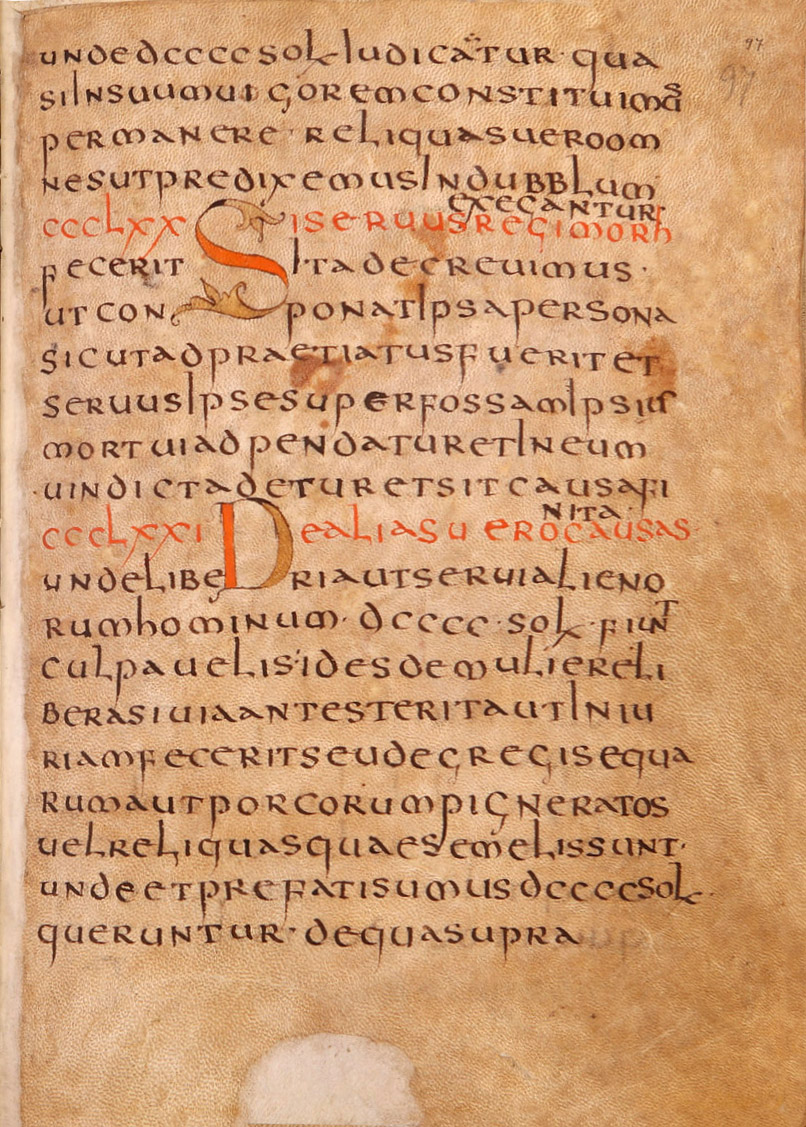 97
97
unde dcccc sol Iudicatur· qua
si In suum uigorem constituimus
permanere· reliquas uero om
nes ut prediximus In dubblum
execantur·
ccclxx Si seruus regi morh
fecerit Ita decreuimus·
ut con ponat Ipsa persona
sicut adpraetiatus fuerit et
seruus Ipse super fossam Ipsius
mortui adpendatur et In eum
·uindicta detur et sit causa fi
nita·
ccclxxi De alias uero causas·
unde libe ri aut serui alieno
rum hominum· dcccc·sol·fiunt
culpauelis·id es de muliere li
bera si uia antesterit aut Iniu
riam fecerit seu de gregis equa
rum aut porcorum pigneratos
uel reliquas quae semelis sunt·
unde et prefati sumus dcccc sol·
queruntur· de qua supra